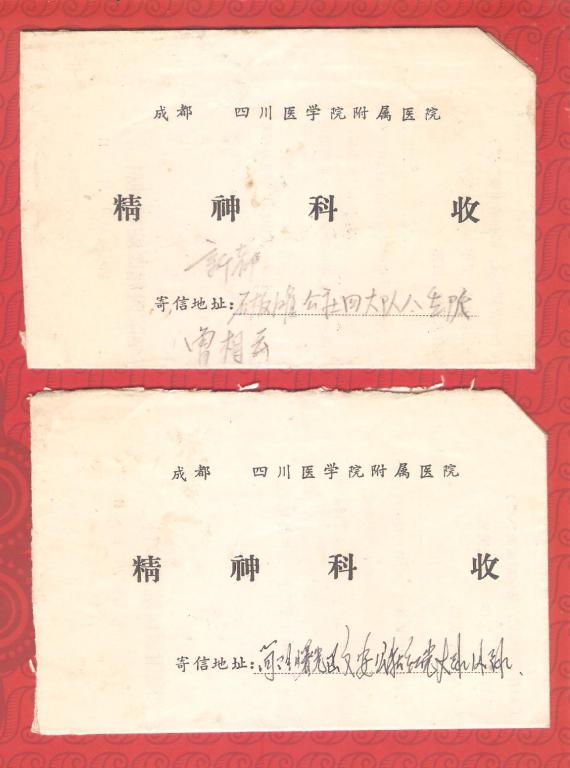 成都 四川医学院附属医院
精神科 收
新都
寄信地址：石板滩公社四大队八生队
曾相云
成都 四川医学院附属医院
精神科 收
寄信地址：